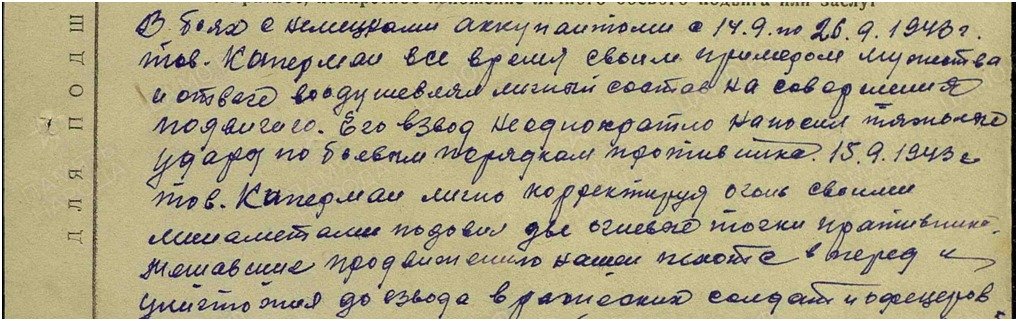 краткое, конкретное изложение личного боевого подвига или заслуг
В боях с немецкими аккупантоми с 14.9. по 26.9.1943 г.
тов. Капелман все время своим примером мужества
и отваге воодушевлял личный состав на совершения
подвигов. Его взвод неоднократно наносил тяжолые
удары по боевым порядкам противника. 15.9.1943 г
тов. Капелман лично корректируя огонь своими
минаметами подовил две огневые точки противника,
мешавшие продвижению нашей пехоте в перед и
уничтожил до взвода вражеских солдат и офецеров
ДЛЯ ПОДШ